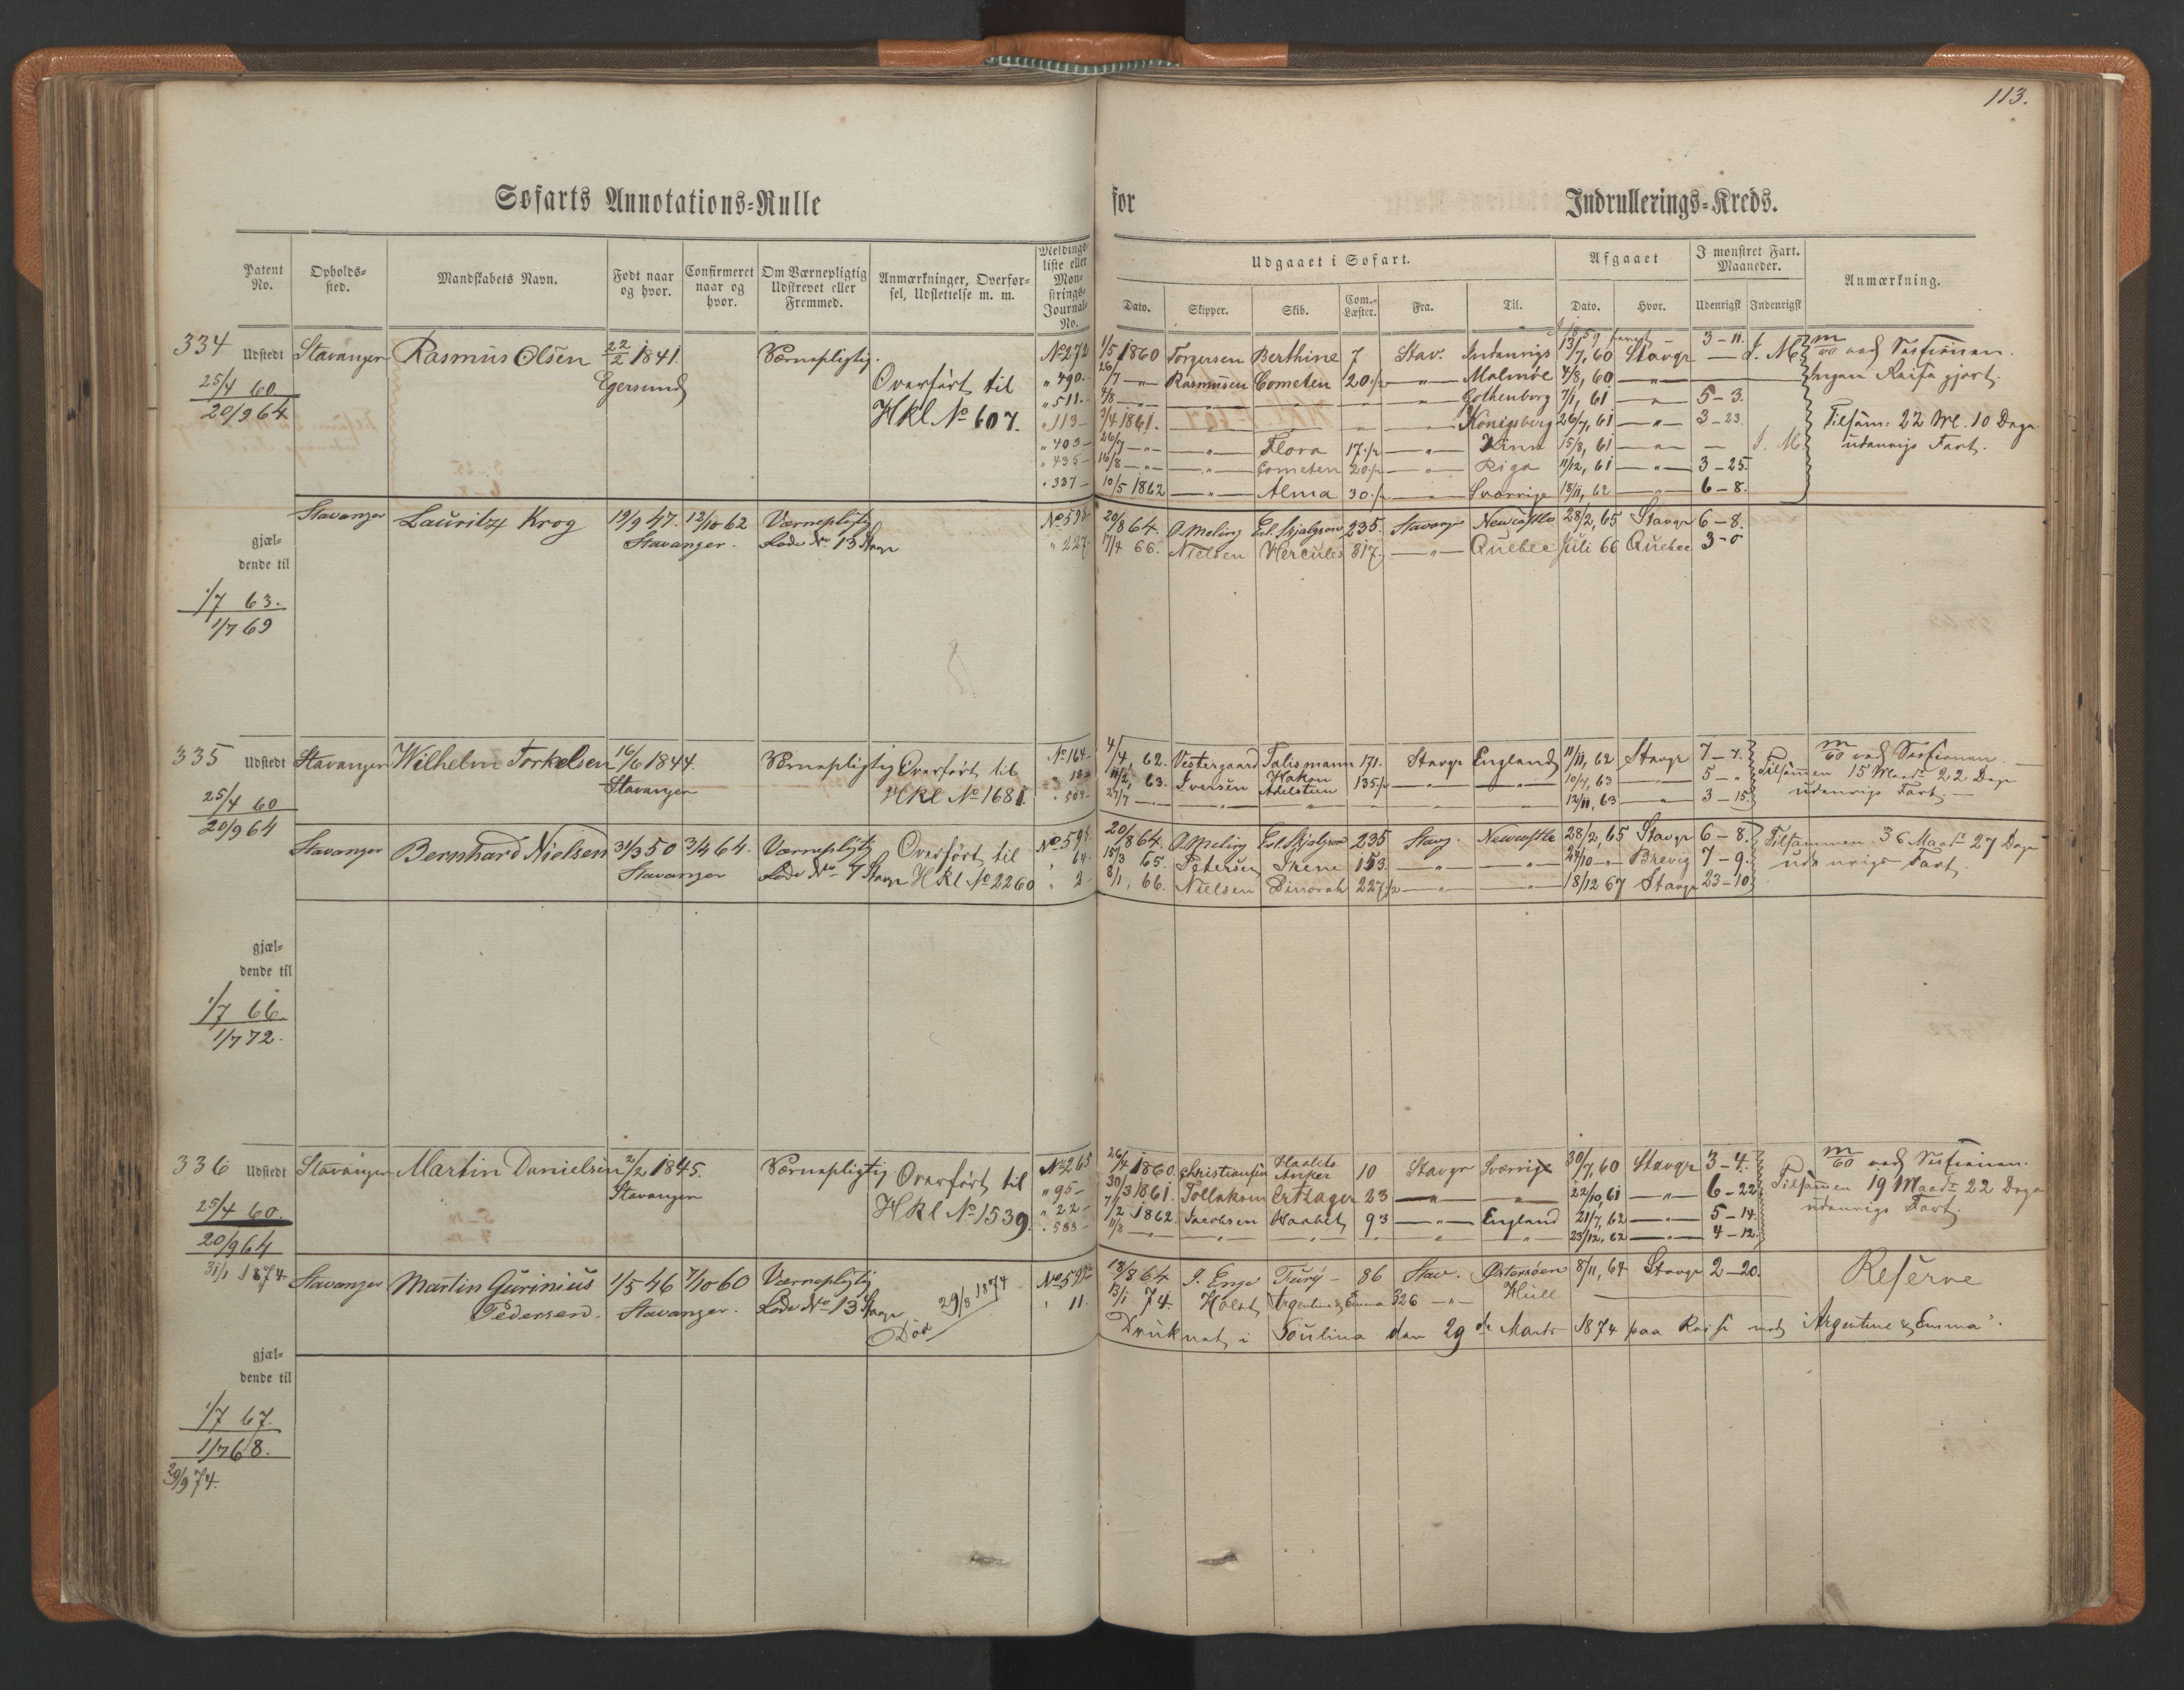 113.
Søfarts Annotations=Rulle for Indrullerings=Kreds.
Patent No. Opholds=sted. Mandskabets Navn. Født naar og hvor. Confirmeret naar og hvor. Om Værnepligtig Udskrevet eller Fremmed. Anmærkninger, Overførsel, Udslettelse m. m. Meldings=liste eller Mønstrings=Journal=No.
Udgaaet i Søfart. Afgaaet I mønstret Fart. Maaneder. Anmærkning.
Dato. Skipper. Skib. Com.=Læster. Fra. Til. Dato. Hvor. Udenrigsk Indenrigsk
334 Udstedt Stavanger Rasmus Olsen 22/2 1841 Værnepligtig. No 272 1/5 1860 Torgersen Berthine 7 Stav. Indenrigs 7/7, 60 Stavgr — I. M.
3 – 11.
25/4 60. Egersund Overført til " 490 26/7 —"— Rasmussen Cometen 20 1/2 —"— Malmöe 4/8, 60 —"—
20/9 64 HKl No 607. " 511 —"— —"— Gothenborg 7/1, 61 —"— 5 – 3.
" 113 3/4 1861. —"— Königsberg 26/7, 61 —"— 3 – 23.
" 403 26/7 —"— —"— Flora 17 1/2 —"— 15/8, 61 —"— — I. M.
" 435 16/8 —"— —"— Cometen 20 1/2 —"— Riga 11/12, 61 —"— 3 – 25.
" 337 10/5 1862 —"— Alma 30 1/2 —"— Sverrige 18/11, 62 —"— 6 – 8.
ved Sessionen.
Ingen Reise gjort.
Tilsam: 22 M. 10 Dage
udenrigs Fart.
Stavanger Lauritz Krog 19/9 47. 12/10 62 Værnepligtig No 598 20/8 64. O. Meling Erl. Skjalgson 235. Stavangr Newcastle 28/2, 65 Stavgr 6 – 8.
Stavanger. Lods No 13 Stavgr " 227 17/4 66. Nielsen Hercules 317. —"— Quebec Juli 66 Quebec 3 – 0
gjæl=
dende til
1/7 63.
1/7 69
335 Udstedt Stavanger Wilhelm Torkelsen 16/6 1844. Værnepligtig Overført til No 164 4/4, 62. Vestergaard Talismann 171. Stavgr England 11/11, 62 Stavgr 7 – 7.
25/4 60 Stavanger HKl No 1681. 11/2, 63. Iversen Hakon Adelsteen 135 1/2 —"— —"— 10/7, 63 —"— 5 – "
20/9 64 " 504 27/7 —"— —"— 12/11, 63 —"— 3 – 15.
ved Sessionen.
Tilsammen 15 Maad. 22 Dage
udenrigs Fart.
Stavanger Bernhard Nielsen 31/3 50 3/4 64. Værnepligtig Overført til No 598 20/8 64. O. Meling Erl. Skjalgson 235 Stavg. Newcastle 28/2, 65 Stavgr 6 – 8.
Stavanger Lods No 7 Stavgr HKl No 2260 " 64 15/3 65. Petersen Irene 153. —"— —"— 24/10 —"— Brevig 7 – 9.
" 2 8/1, 66. Nielsen Dinorah 227 1/2 —"— —"— 18/12 67 Stavgr 23 – 10
Tilsammen 36 Maad. 27 Dage
udenrigs Fart.
gjæl=
dende til
1/7 66.
1/7 72.
336 Udstedt Stavanger Martin Danielsen 2/2 1845. Værnepligtig Overført til No 265 26/4 1860. Christiansen Haabets Anker 10 Stavgr Sverrige 30/7, 60 Stavgr 3 – 4.
25/4 60. Stavanger HKl No 1539. " 95 30/3 1861. Tollaksen 23 —"— —"— 22/10, 61 —"— 6 – 22
20/9 64 " 22 7/2 1862. Jacobsen Haabet 93 —"— England 21/7, 62 —"— 5 – 14.
" 583 11/8 —"— —"— 23/12, 62 —"— 4 – 12.
ved Sessionen.
Tilsammen 19 Maad. 22 Dage
udenrigs Fart.
31/1 1874 Stavanger Martin Gurinius 1/5 46 7/10 60 Værnepligtig No 592 18/8 64 J. Enge Fury 86 Stav. Østersøen 8/11, 64 Stavgr 2 – 20. Reserve
Pedersen. Stavanger. Lods No 13 Stavgr 29/3 1874 " 11. 13/1 74. Holst Argentine & Emma 326 —"— Hull
Død Druknet i Soulina den 29de Marts 1874 paa Reise med "Argentine & Emma".
gjæl=
dende til
1/7 67.
1/7 68.
29/9 74.